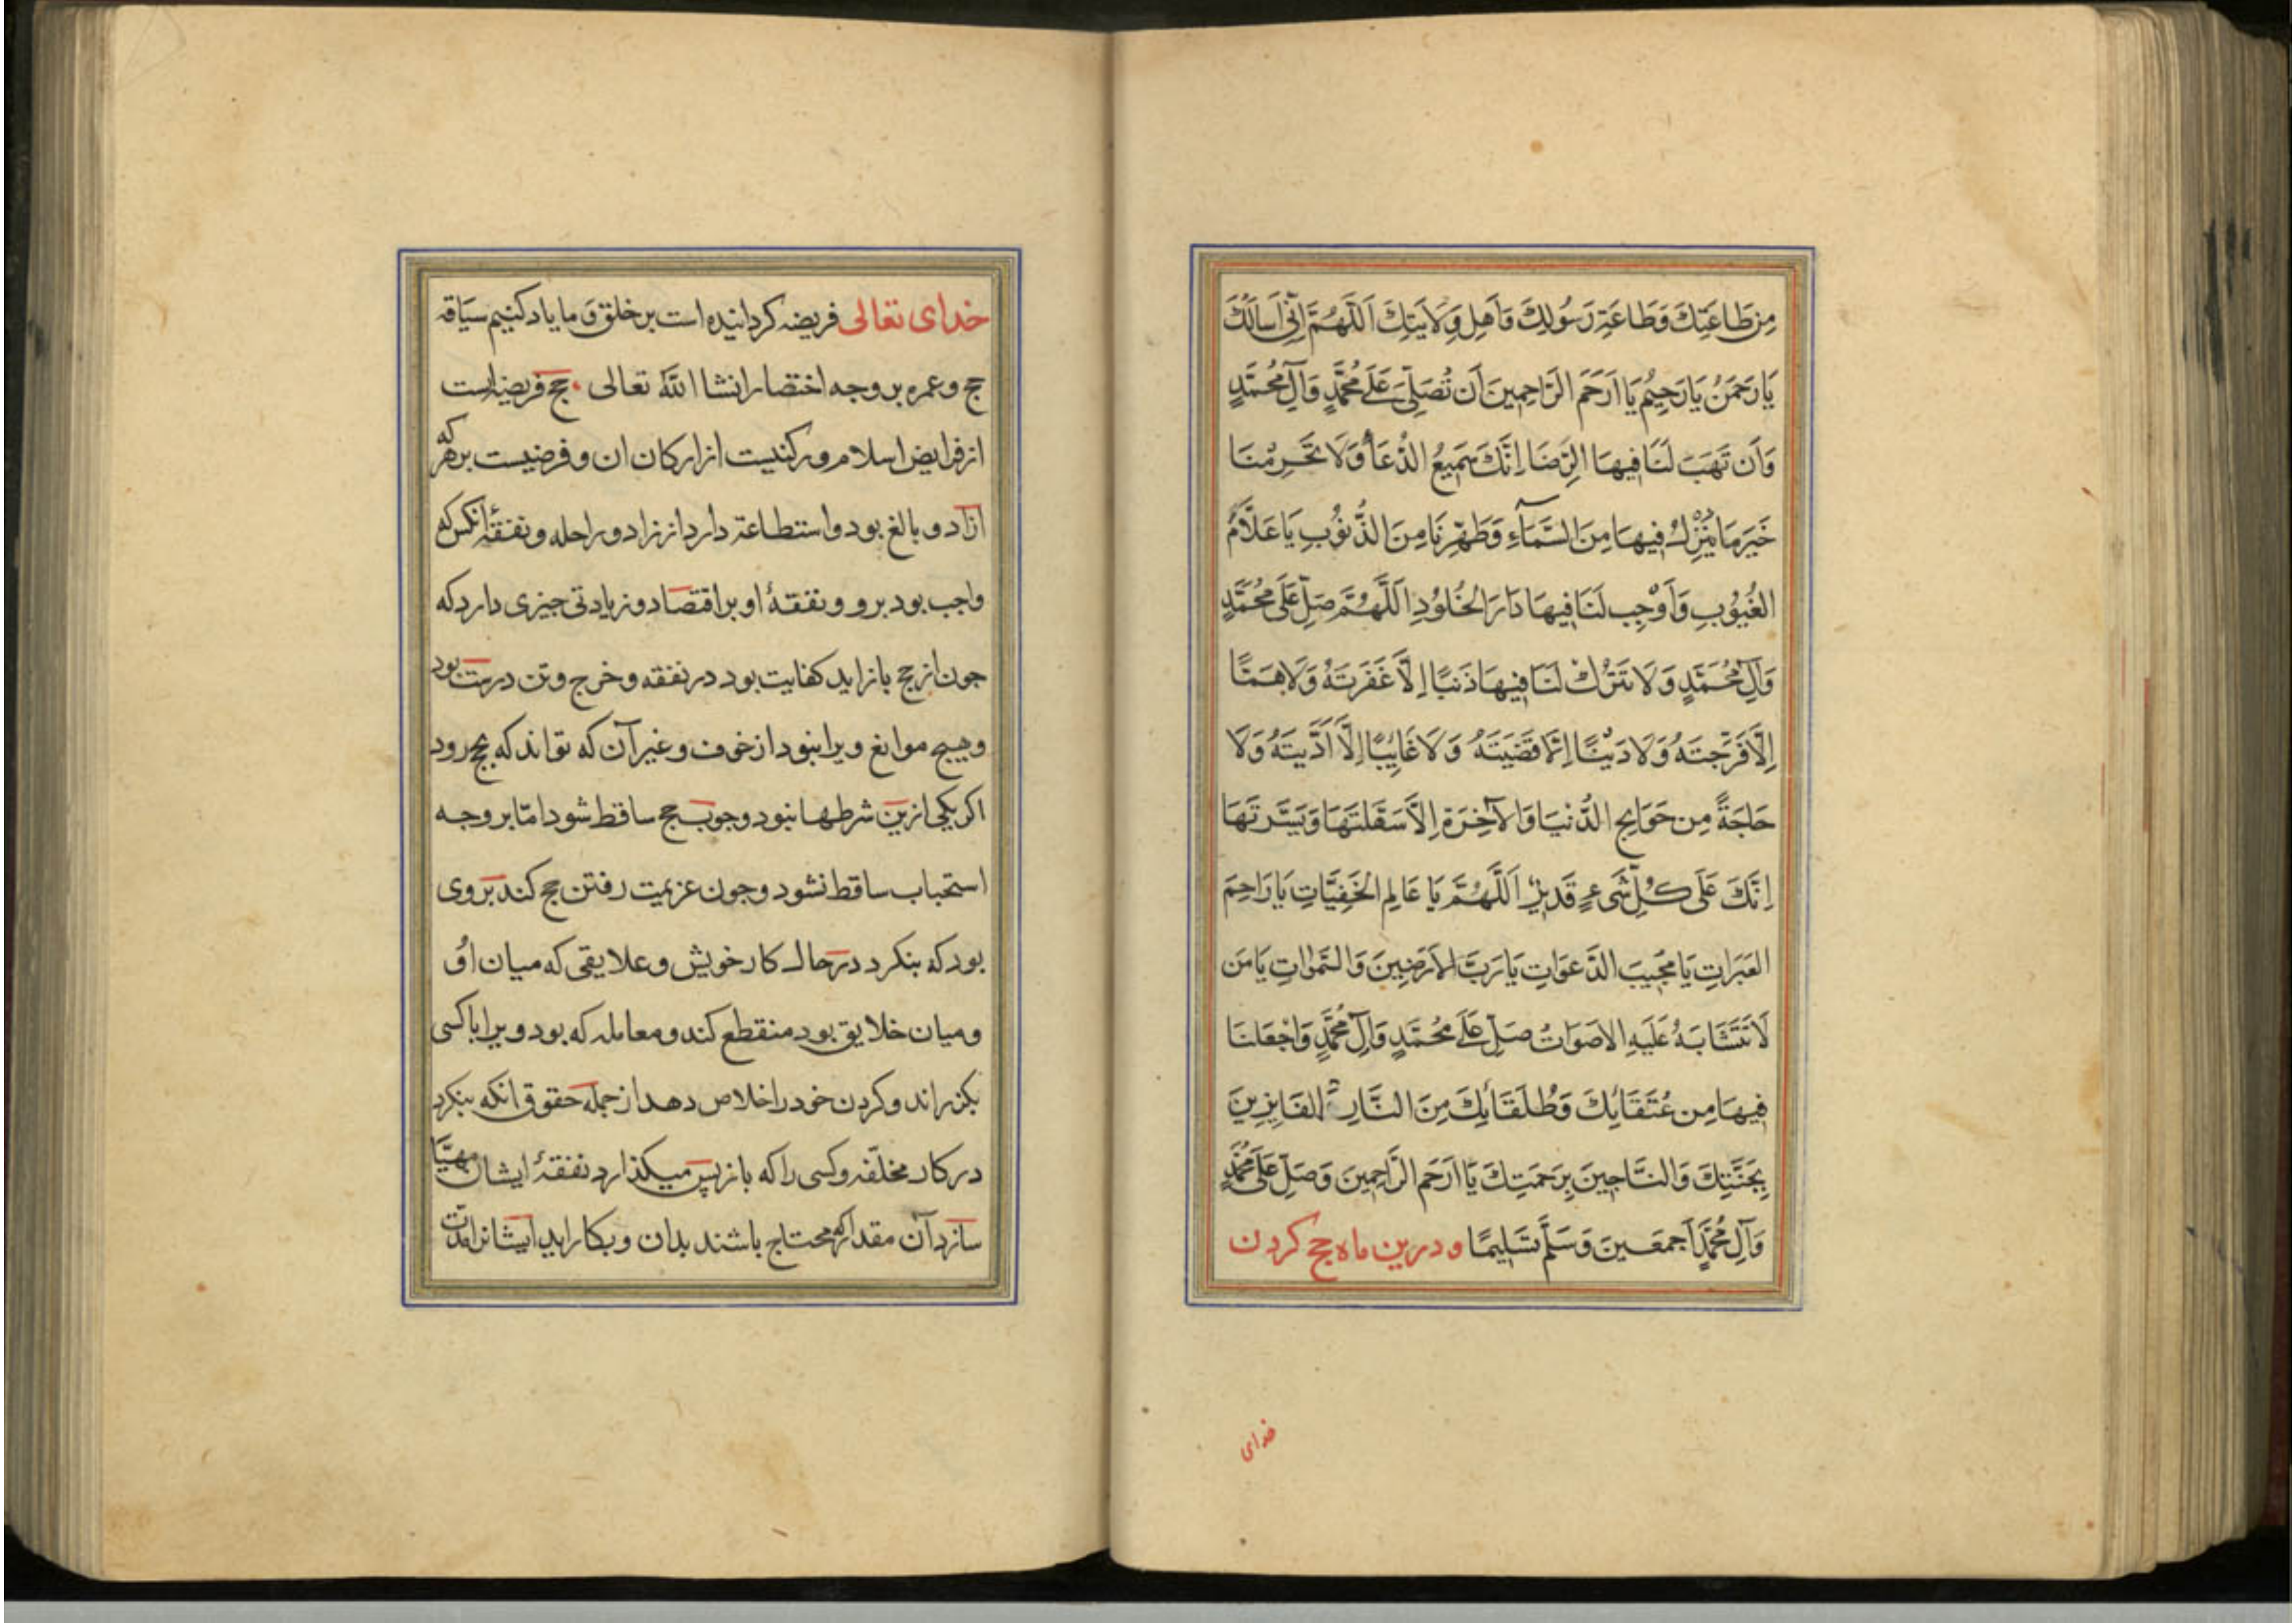 مِن طَاعَتِكَ وَطَاعَةِ رَسُولِكَ وَاَهلِ وِلَايَتِكَ اَللّهُمَّ اِنّي اَسأَلُكَ
يَا رَحمَنُ يَا رَحِيمُ يَا اَرحَمَ الرَّاحِمِينَ اَن تُصَلِّيَ عَلَى مُحَمَّدٍ وَآلِ مُحَمَّدٍ
وَاَن تَهَبَ لَنَا فِيهَا الرِّضَا اِنَّكَ سَمِيعُ الدُّعَاءِ وَلَا تَحرِمنَا
خَيرَ مَا يُنزِلُ فِيهَا مِنَ السَّمَآءِ وَطَهِّرنَا مِنَ الذُّنُوبِ يَا عَلَّامُ
الغُيُوبِ وَاَوْجِب لَنَا فِيهَا دَارَ الخُلُودِ اَللَّهُمَّ صَلِّ عَلَى مُحَمَّدٍ
وَآلِ مُحَمَّدٍ وَلَا تَترُك لَنَا فِيهَا ذَنبًا اِلَّا غَفَرتَهُ وَلَا هَمًّا
اِلَّا فَرَّجتَهُ وَلَا دَينًا اِلَّا قَضَيتَهُ وَلَا غَايِبًا اِلَّا اَدَّيتَهُ وَلَا
حَاجَةً مِن حَوَايِجِ الدُّنيَا وَالآخِرَةِ اِلَّا سَهَّلتَهَا وَيَسَّرتَهَا
اِنَّكَ عَلَى كُلِّ شَيءٍ قَدِيرٌ اَللَّهُمَّ يَا عَالِمَ الخَفِيَّاتِ يَا رَاحِمَ
العَبَرَاتِ يَا مُجِيبَ الدَّعَوَاتِ يَا رَبَّ الاَرَضِينَ وَالسَّمٰوَاتِ يَا مَن
لَا تَتَشَابَهُ عَلَيهِ الاَصوَاتُ صَلِّ عَلَى مُحَمَّدٍ وَآلِ مُحَمَّدٍ وَاجعَلنَا
فِيهَا مِن عُتَقَائِكَ وَطُلَقَائِكَ مِنَ النَّارِ الفَايِزِينَ
بِجَنَّتِكَ وَالنَّاجِينَ بِرَحمَتِكَ يَا اَرحَمَ الرَّاحِمِينَ وَصَلِّ عَلَى مُحَمَّدٍ
وَآلِ مُحَمَّدٍ اَجمَعِينَ وَسَلَّمَ تَسلِيمًا ودرین ماه حج کردن
خدای
خدای تعالی فریضه کردانیده است بر خلق و ما یاد کنیم سیاقه
حج و عمره بر وجه اختصار انشا الله تعالی حج فریضه است
از فرایض اسلام و رکنیست از ارکان ان و فرضیست بر هر که
ازاد و بالغ بود و استطاعة دارد از زاد و راحله و نفقهٔ انکس که
واجب بود برو و نفقهٔ او بر اقتصاد و زیادتی چیزی دارد که
جون از حج باز اید کفایت بود در نفقه و خرج و تن درست بود
و هیچ موانع ویرا نبود از خوف و غیر آن که تواند که بحج رود
اکر یکی ازین شرطها نبود وجوب حج ساقط شود امّا بر وجه
استحباب ساقط نشود و جون عزیمت رفتن حج کند بر وی
بود که بنکرد در حال کار خویش و علایقی که میان او
و میان خلایق بود منقطع کند و معامله که بود ویرا با کسی
بکزراند و کردن خود را خلاص دهد از جمله حقوق انکه بنکرد
در کار مخلّفه و کسی را که باز پس میکذارد نفقهٔ ایشان مهیّا
سازد آن مقدار که محتاج باشند بدان و بکار اید ایشانرا مدّت